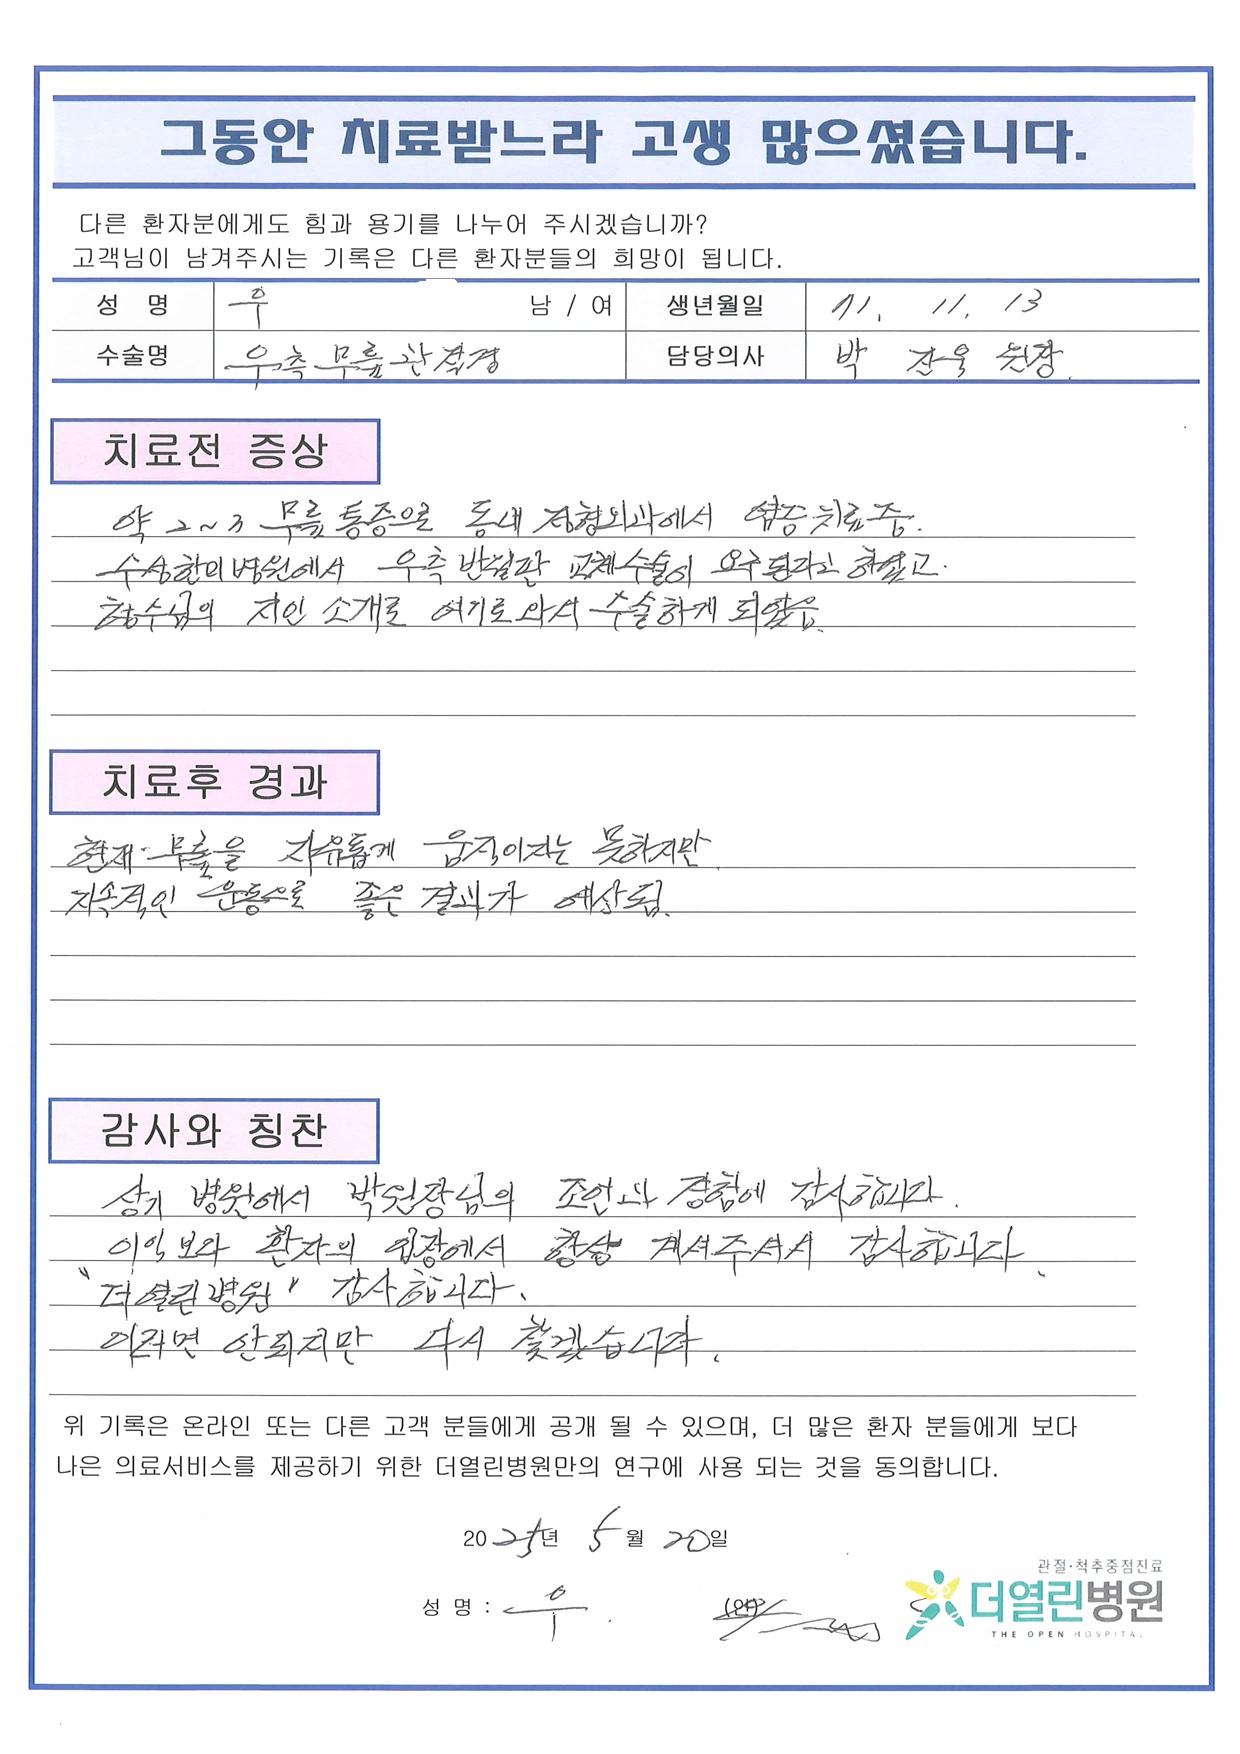 그동안 치료받느라 고생 많으셨습니다.
다른 환자분에게도 힘과 용기를 나누어 주시겠습니까?
고객님이 남겨주시는 기록은 다른 환자분들의 희망이 됩니다.
성 명 우 남 / 여 생년월일 71. 11. 13
수술명 우측 무릎 관절경 담당의사 박 진욱 원장.
치료전 증상
약 2~3 무릎통증으로 동네 정형외과에서 염증치료중.
병원에서 우측 반월판 교체수술이 요구된다고 하였고.
형수님의 지인 소개로 여기로 와서 수술하게 되었음.
치료후 경과
현재 무릎을 자유롭게 움직이지는 못하지만
지속적인 운동으로 좋은 결과가 예상됨.
감사와 칭찬
상기 병원에서 박원장님의 조언과 경험에 감사합니다.
이익보다 환자의 입장에서 항상 계셔주셔서 감사합니다.
"더열린병원" 감사합니다.
이러면 안되지만 다시 찾겠습니다.
위 기록은 온라인 또는 다른 고객 분들에게 공개 될 수 있으며, 더 많은 환자 분들에게 보다
나은 의료서비스를 제공하기 위한 더열린병원만의 연구에 사용 되는 것을 동의합니다.
2025년 5월 20일
관절·척추중점진료
성 명 : 우 . (인)
더열린병원
THE OPEN HOSPITAL